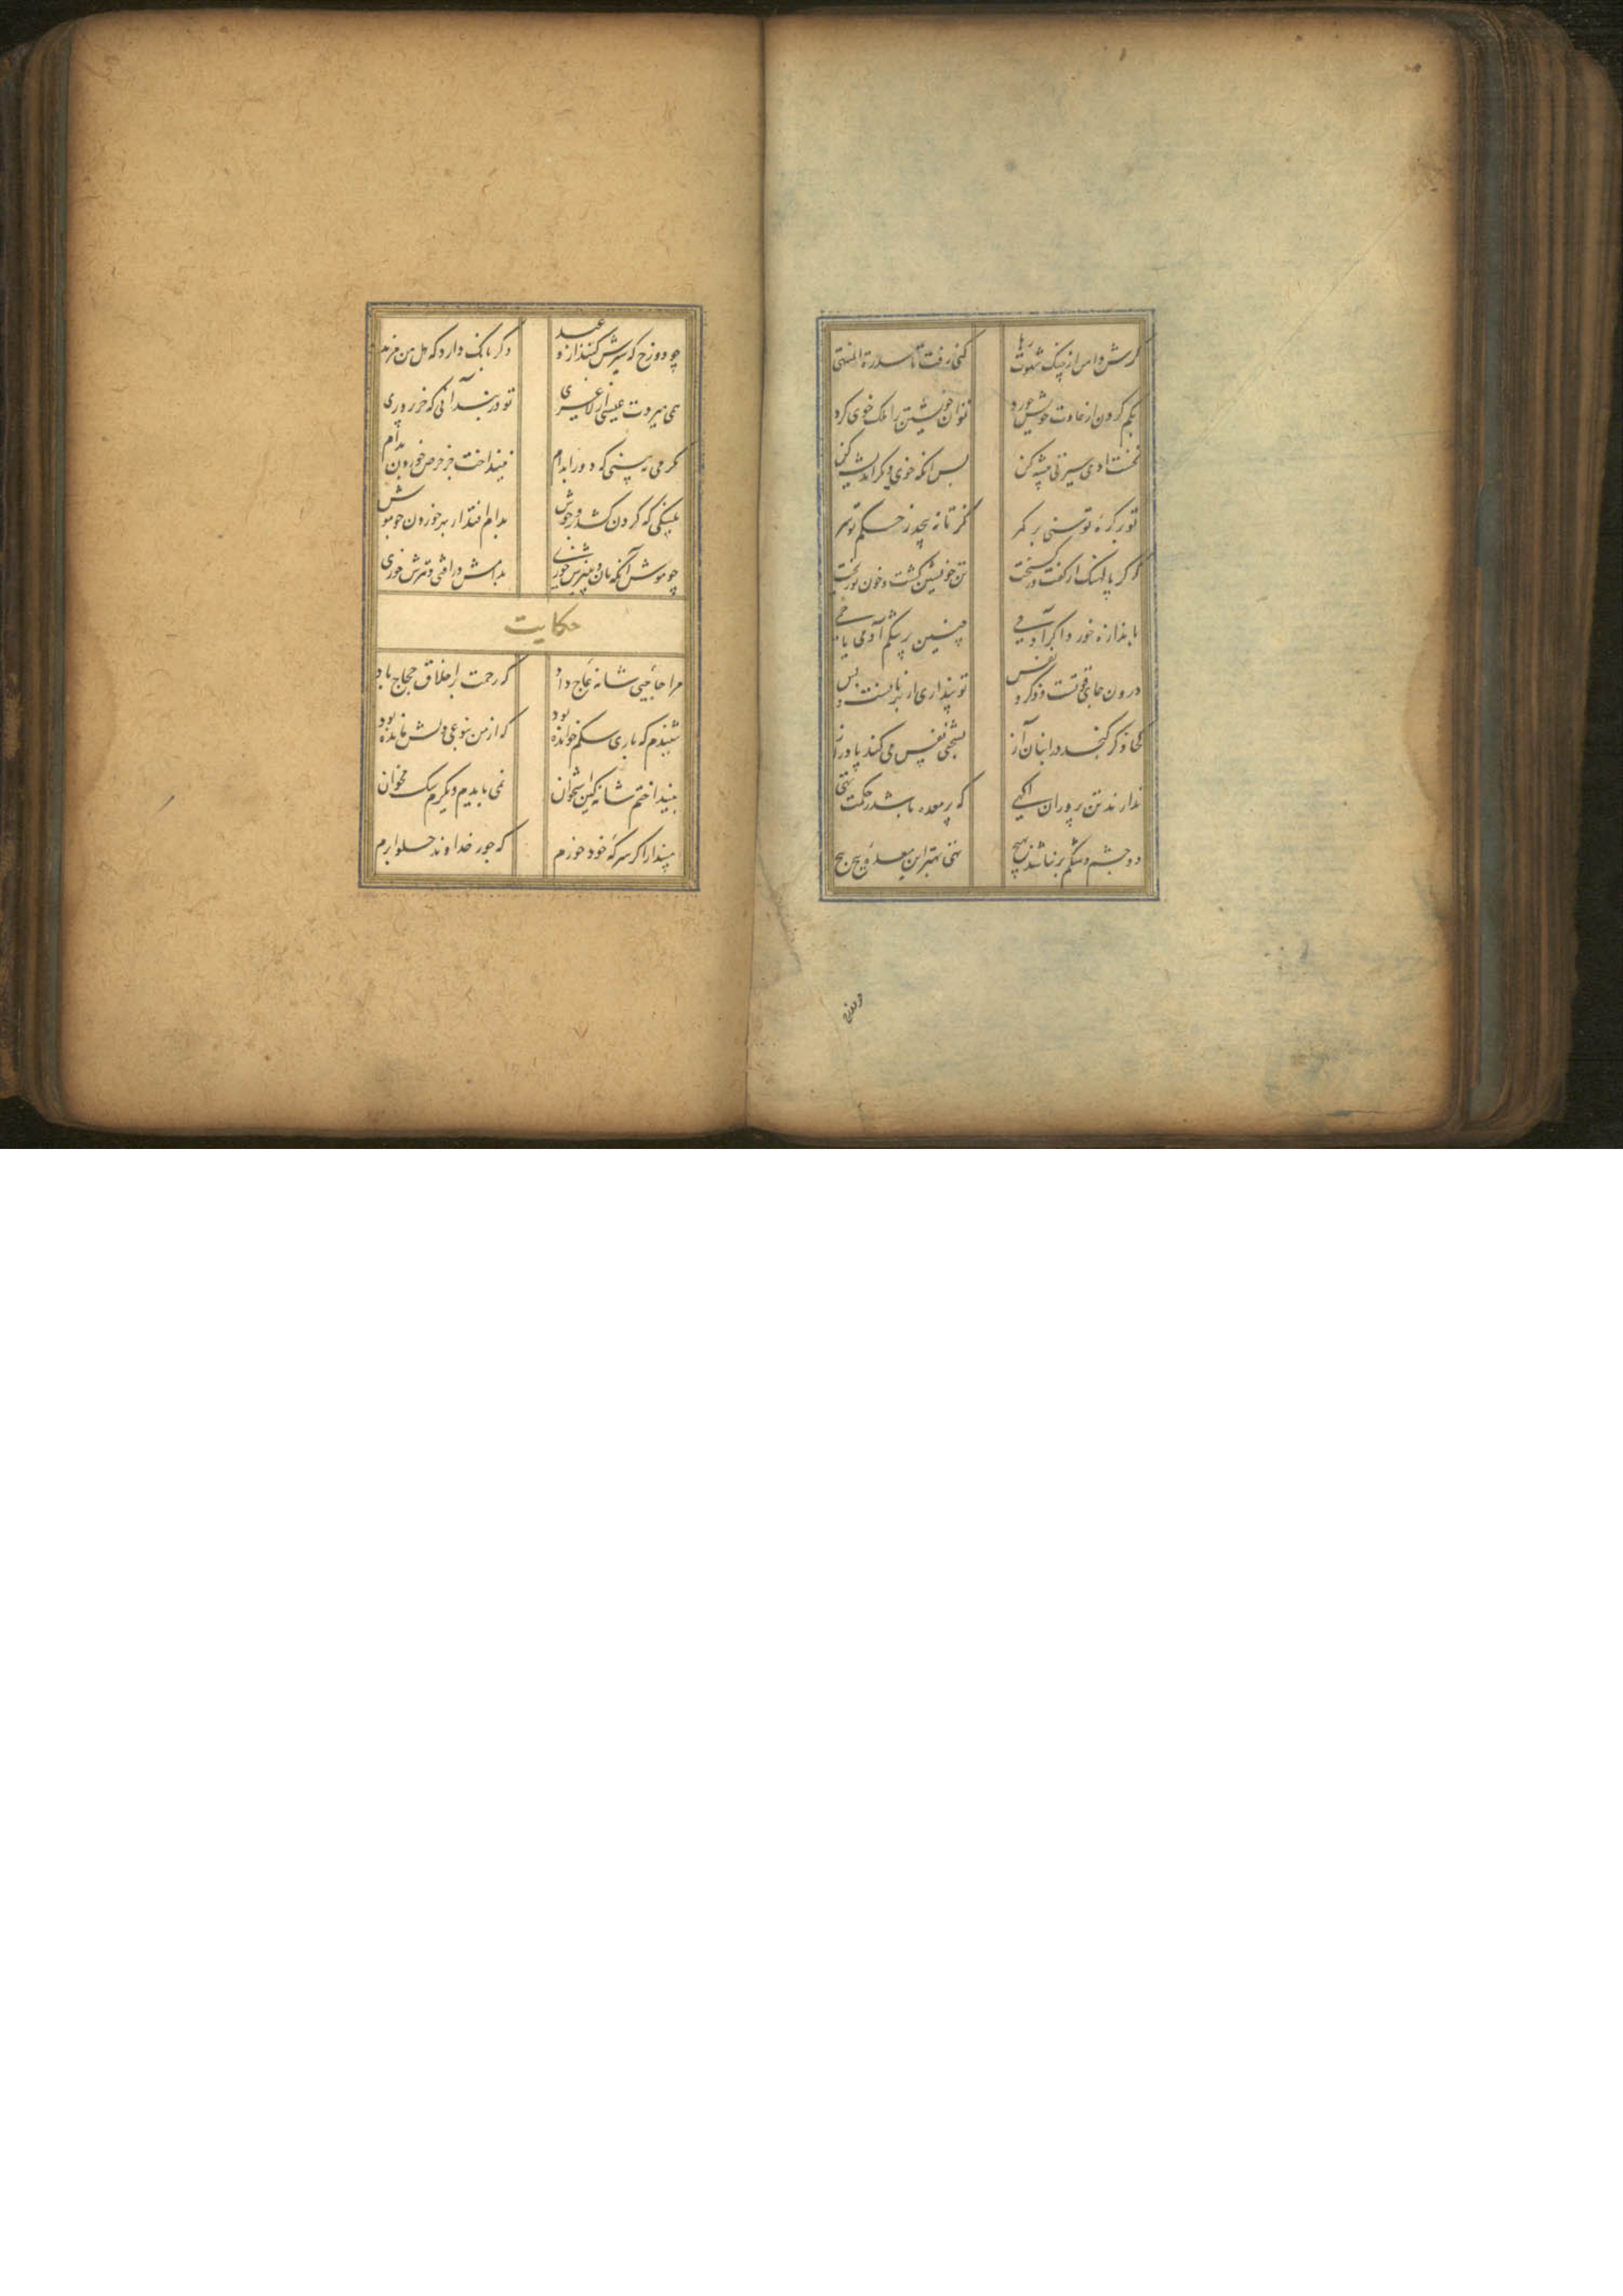 گرش دامن از چنگ شهوت رها
کنی رفت تا سدرة المنتهی
بکم کردن از عادت خویش خورد
توان خویشتن را ملک خوی کرد
نخست ادمی سیرتی پیشه کن
پس انکه خوی دیگر اندیشه کن
تو بر کره توسنی بر کمر
نگر تا نه پیچد ز حکم تو سر
که گر پالهنک از کفت در کسیخت
تن خویشتن کشت و خون تو ریخت
باندازه خور زاد اگر آدمی
چنین پر شکم آدمی یا خمی
درون جای قوتست و ذکر و نفس
تو پنداری از بهر نانست و بس
کجا ذکر کنجد در انبان آز
بسختی نفس می کند پا دراز
ندارند تن پروران اکهی
که پر معده باشد ز حکمت تهی
دو چشم و شکم پر نباشد بهیچ
تهی بهتر این معدهٔ پیچ پیچ
چو دوزخ
چو دوزخ که سیرش کنند از وعید
دگر بانک دارد که هل من مزید
همی میردت عیسی از لاغری
تو در بند آنی که خر پروری
مگر می نبینی که دد را بدام
نینداخت جز حرص خوردن بدام
پلنکی که کردن کشد بر وحوش
بدام افتد از بهر خوردن چو موش
چو موش آنکه نان و پنیرش خوری
بدامش در افتی و تیرش خوری
حکایت
مرا حاجیی شانهٔ عاج داد
که رحمت بر اخلاق حجاج باد
شنیدم که باری سکم خوانده بود
که از من بنوعی دلش مانده بود
بینداختم شانه کین استخوان
نمی بایدم دیکرم سک مخوان
مپندار اکر سرکهٔ خود خورم
که جور خداوند حلوا برم